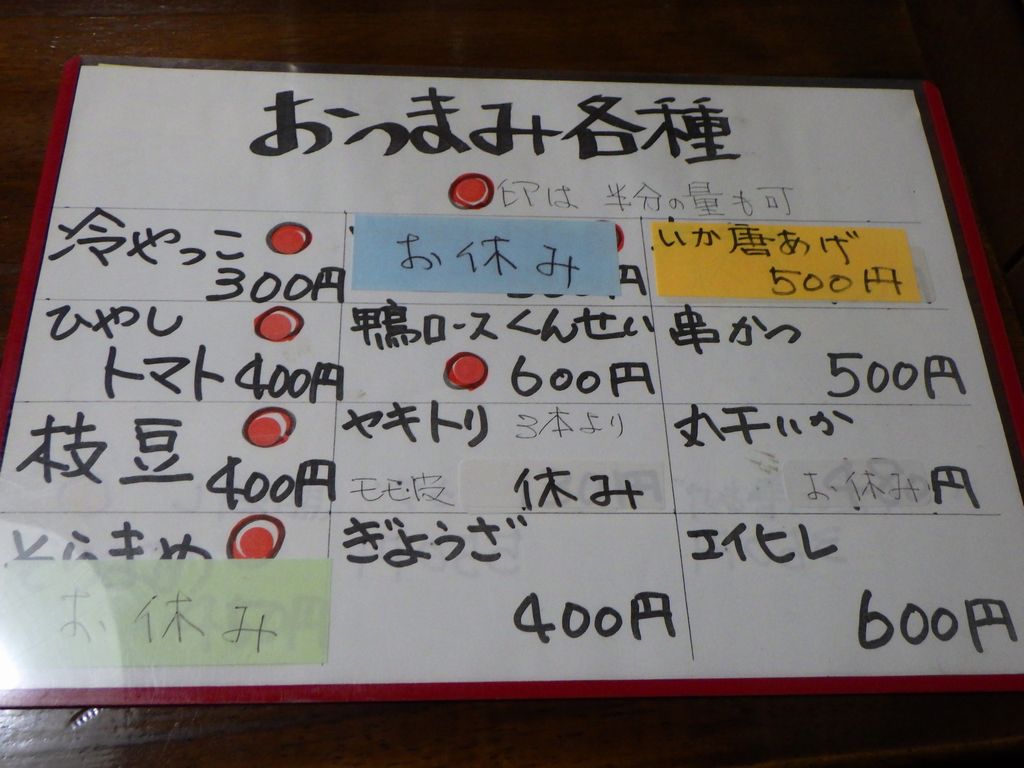 おつまみ各種
印は 半分の量も可
冷やっこ
300円
お休み
いか唐あげ
500円
ひやし
トマト 400円
鴨ロースくんせい
600円
串かつ
500円
枝豆
400円
ヤキトリ 3本より
モモ皮 休み
丸干いか
お休み 円
とらまめ
お休み
ぎょうざ
400円
エイヒレ
600円